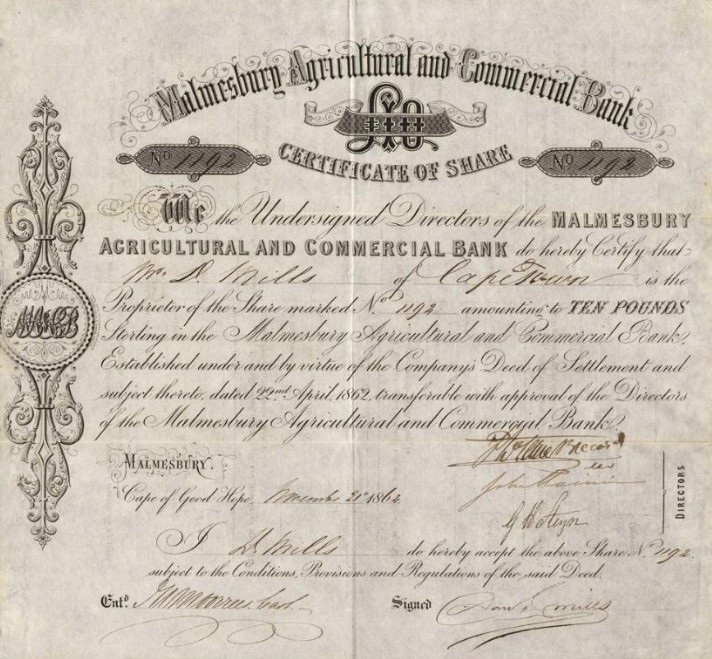 Malmesbury Agricultural and Commercial Bank
£10
CERTIFICATE OF SHARE
No 1192
No 1192
We the Undersigned Directors of the MALMESBURY
AGRICULTURAL AND COMMERCIAL BANK do hereby Certify that
D. Mills of Cape Town is the
Proprietor of the Share marked No 1192 amounting to TEN POUNDS
Sterling in the Malmesbury Agricultural and Commercial Bank,
Established under and by virtue of the Company's Deed of Settlement and
subject thereto, dated 22nd April, 1862, transferable with approval of the Directors
of the Malmesbury Agricultural and Commercyal Bank
MALMESBURY.
Cape of Good Hope, 1864
John
DIRECTORS
I D. Mills do hereby accept the above Share No 1192
subject to the Conditions, Provisions and Regulations of the said Deed.
Entd.
Signed Mills